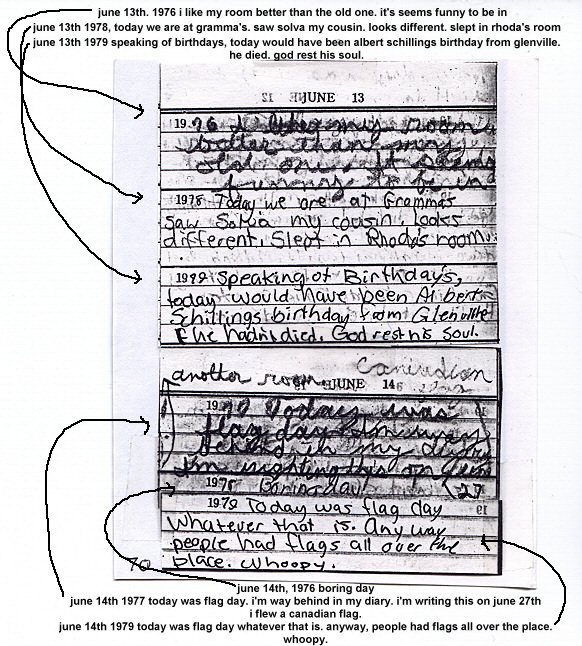 june 13th. 1976 i like my room better than the old one. it's seems funny to be in
june 13th 1978, today we are at gramma's. saw solva my cousin. looks different. slept in rhoda's room
june 13th 1979 speaking of birthdays, today would have been albert schillings birthday from glenville.
he died. god rest his soul.
JUNE 13
1976 I like my room
better than my
old one. It seems
funny to be in
1978 Today we are at Gramma's
saw Solvia my cousin. looks
different. Slept in Rhody's room.
1979 Speaking of Birthdays,
today would have been Albert
Schillings birthday from Glenville
if he hadn't died. God rest his soul.
another room. Canadian
JUNE 14
1977 Today was
flag day. I'm way
behind in my diary
I'm writing this on June
1978 Boring day 27
1979 Today was flag day
Whatever that is. Any way
people had flags all over the
place. Whoopy.
70
june 14th, 1976 boring day
june 14th 1977 today was flag day. i'm way behind in my diary. i'm writing this on june 27th
i flew a canadian flag.
june 14th 1979 today was flag day whatever that is. anyway, people had flags all over the place.
whoopy.